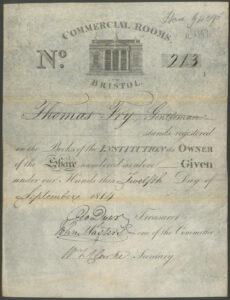 COMMERCIAL ROOMS
No. 213
BRISTOL.
Thomas Fry Gentleman
stands registered
on the Books of the INSTITUTION as OWNER
of the Share numbered as above Given
under our Hands this Twelfth Day of
September 1814
Treasurer
one of the Committee
Secretary